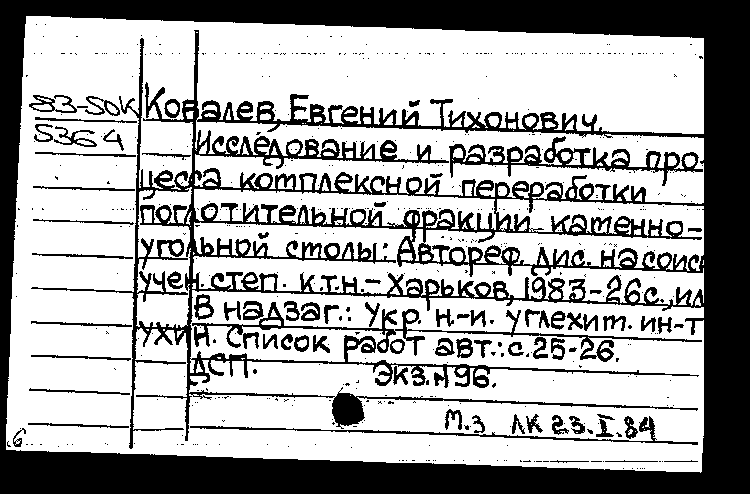 83-50К Ковалев, Евгений Тихонович.
5364 Исследование и разработка про-
цесса комплексной переработки
поглотительной фракции каменно-
угольной смолы: Автореф. дис. на соиск
учен. степ. к.т.н.- Харьков, 1983-26с., ил
В надзаг.: Укр. н.-и. углехим. ин-т
УХИН. Список работ авт.: с.25-26.
ДСП. Экз.№96.
М.З. ЛК 23.I.84
6